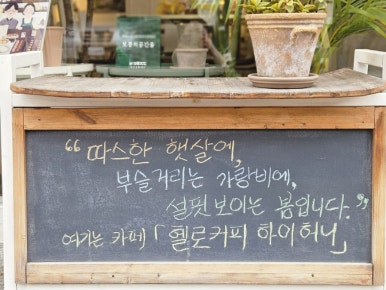 “ 따스한 햇살에,
부슬거리는 가랑비에,
설핏 보이는 봄입니다.”
여기는 카페 「헬로커피 하이허니」